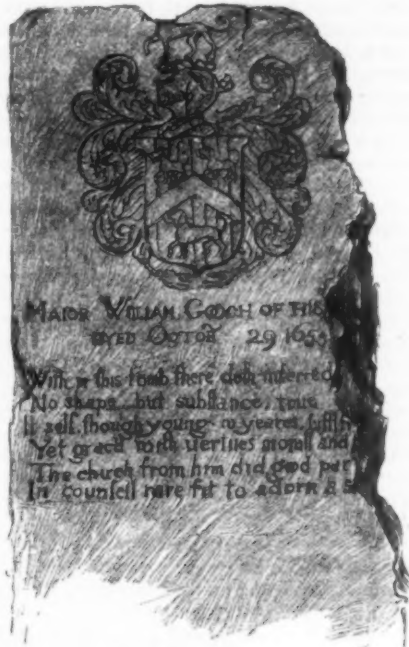 MAIOR WILLIAM GOOCH OF THIS
DYED OCTOB 29 165
With in this tomb there doth interred
No shape but substance, true
It self though young in yeares
Yet grac'd with vertues morall and
The church from him did good par
In counsell rare fit to adorn a